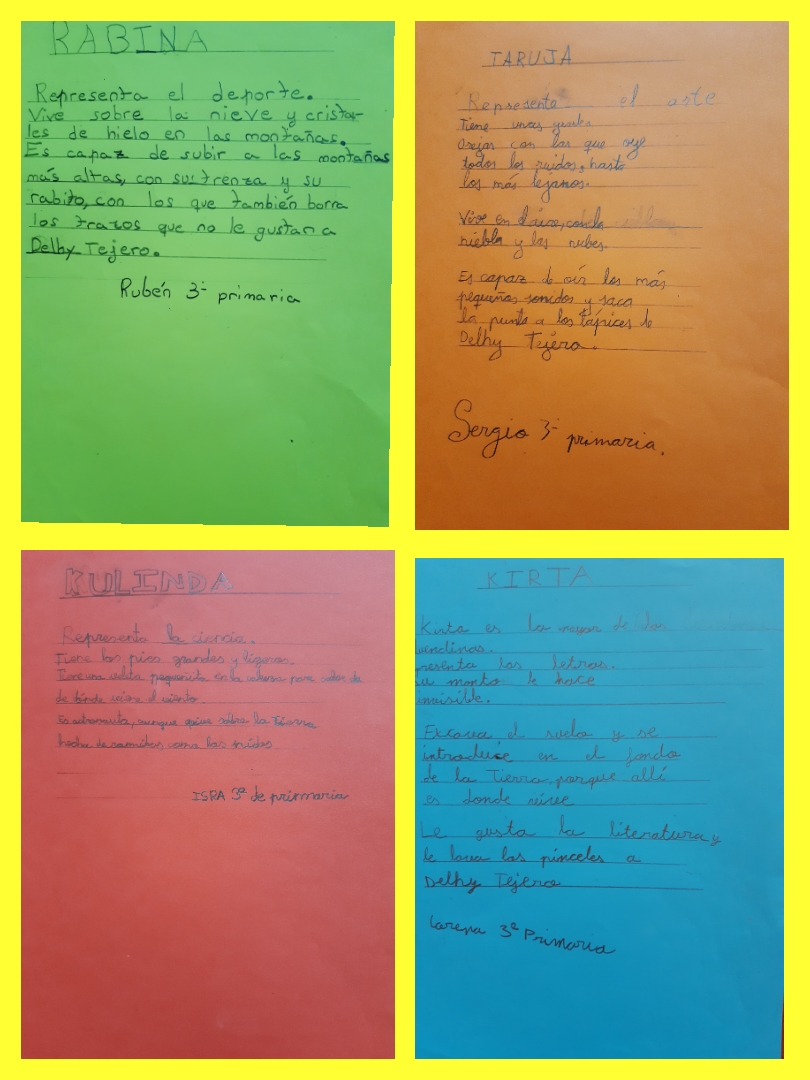 RABINA
Representa el deporte.
Vive sobre la nieve y crista-
les de hielo en las montañas.
Es capaz de subir a las montañas
más altas, con su trenza y su
rabito, con los que también borra
los trazos que no le gustan a
Delhy Tejero.
Rubén 3º primaria
TARUJA
Representa el arte
Tiene unas grandes
orejas con las que oye
todos los ruidos, hasta
los más lejanos.
Vive en el aire, con la
niebla y las nubes.
Es capaz de oír los más
pequeños sonidos y saca
la punta a los lápices de
Delhy Tejero.
Sergio 3º primaria.
KULINDA
Representa la ciencia.
Tiene los pies grandes y ligeros.
Tiene una veleta pequeñita en la cabeza para saber de
de dónde viene el viento
Es astronauta, aunque vive sobre la Tierra
hecha de ramitas como los nidos.
ISRA 3º de primaria
KIRTA
Kirta es la mayor de las
duendinas.
presenta las letras.
su manto le hace
invisible.
Excava el suelo y se
introduce en el fondo
de la Tierra, porque allí
es donde vive
Le gusta la literatura y
le lava los pinceles a
Delhy Tejero
Lorena 3º Primaria